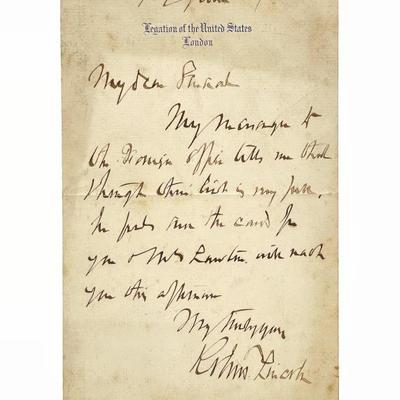 Legation of the United States
London
My dear
My messenger to
the Foreign Office tells me that
through their list is very full,
he feels sure the card for
you & Mrs Lawton will reach
you this afternoon
Very truly yours
Robert T. Lincoln